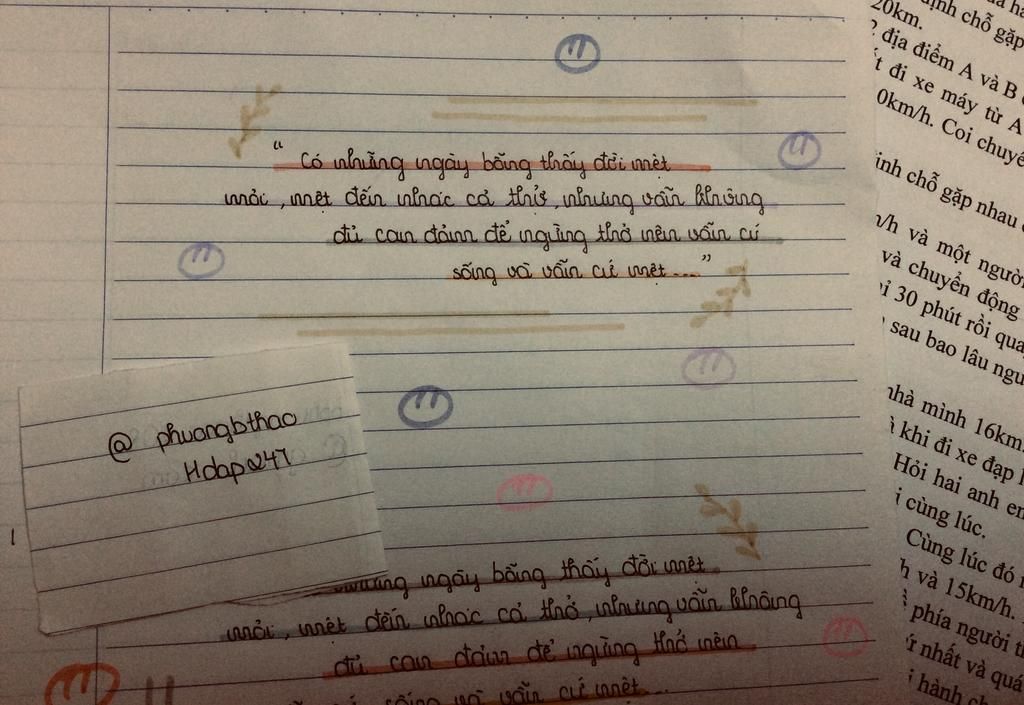 “ Có những ngày bỗng thấy đời mệt
mỏi, mệt đến nhác cả thở, nhưng vẫn không
đủ can đảm để ngừng thở nên vẫn cứ
sống và vẫn cứ mệt....”
@ phuongbthao
Hdap247
những ngày bỗng thấy đời mệt
mỏi, mệt đến nhác cả thở, nhưng vẫn không
đủ can đảm để ngừng thở nên
sống và vẫn cứ mệt...
định chỗ gặp
20km.
2 địa điểm A và B
đi xe máy từ A
0km/h. Coi chuyể
ịnh chỗ gặp nhau
n/h và một người
và chuyển động
30 phút rồi qua
sau bao lâu ngu
nhà mình 16km.
khi đi xe đạp
Hỏi hai anh em
cùng lúc.
Cùng lúc đó
h và 15km/h.
phía người th
nhất và quá
hành ch